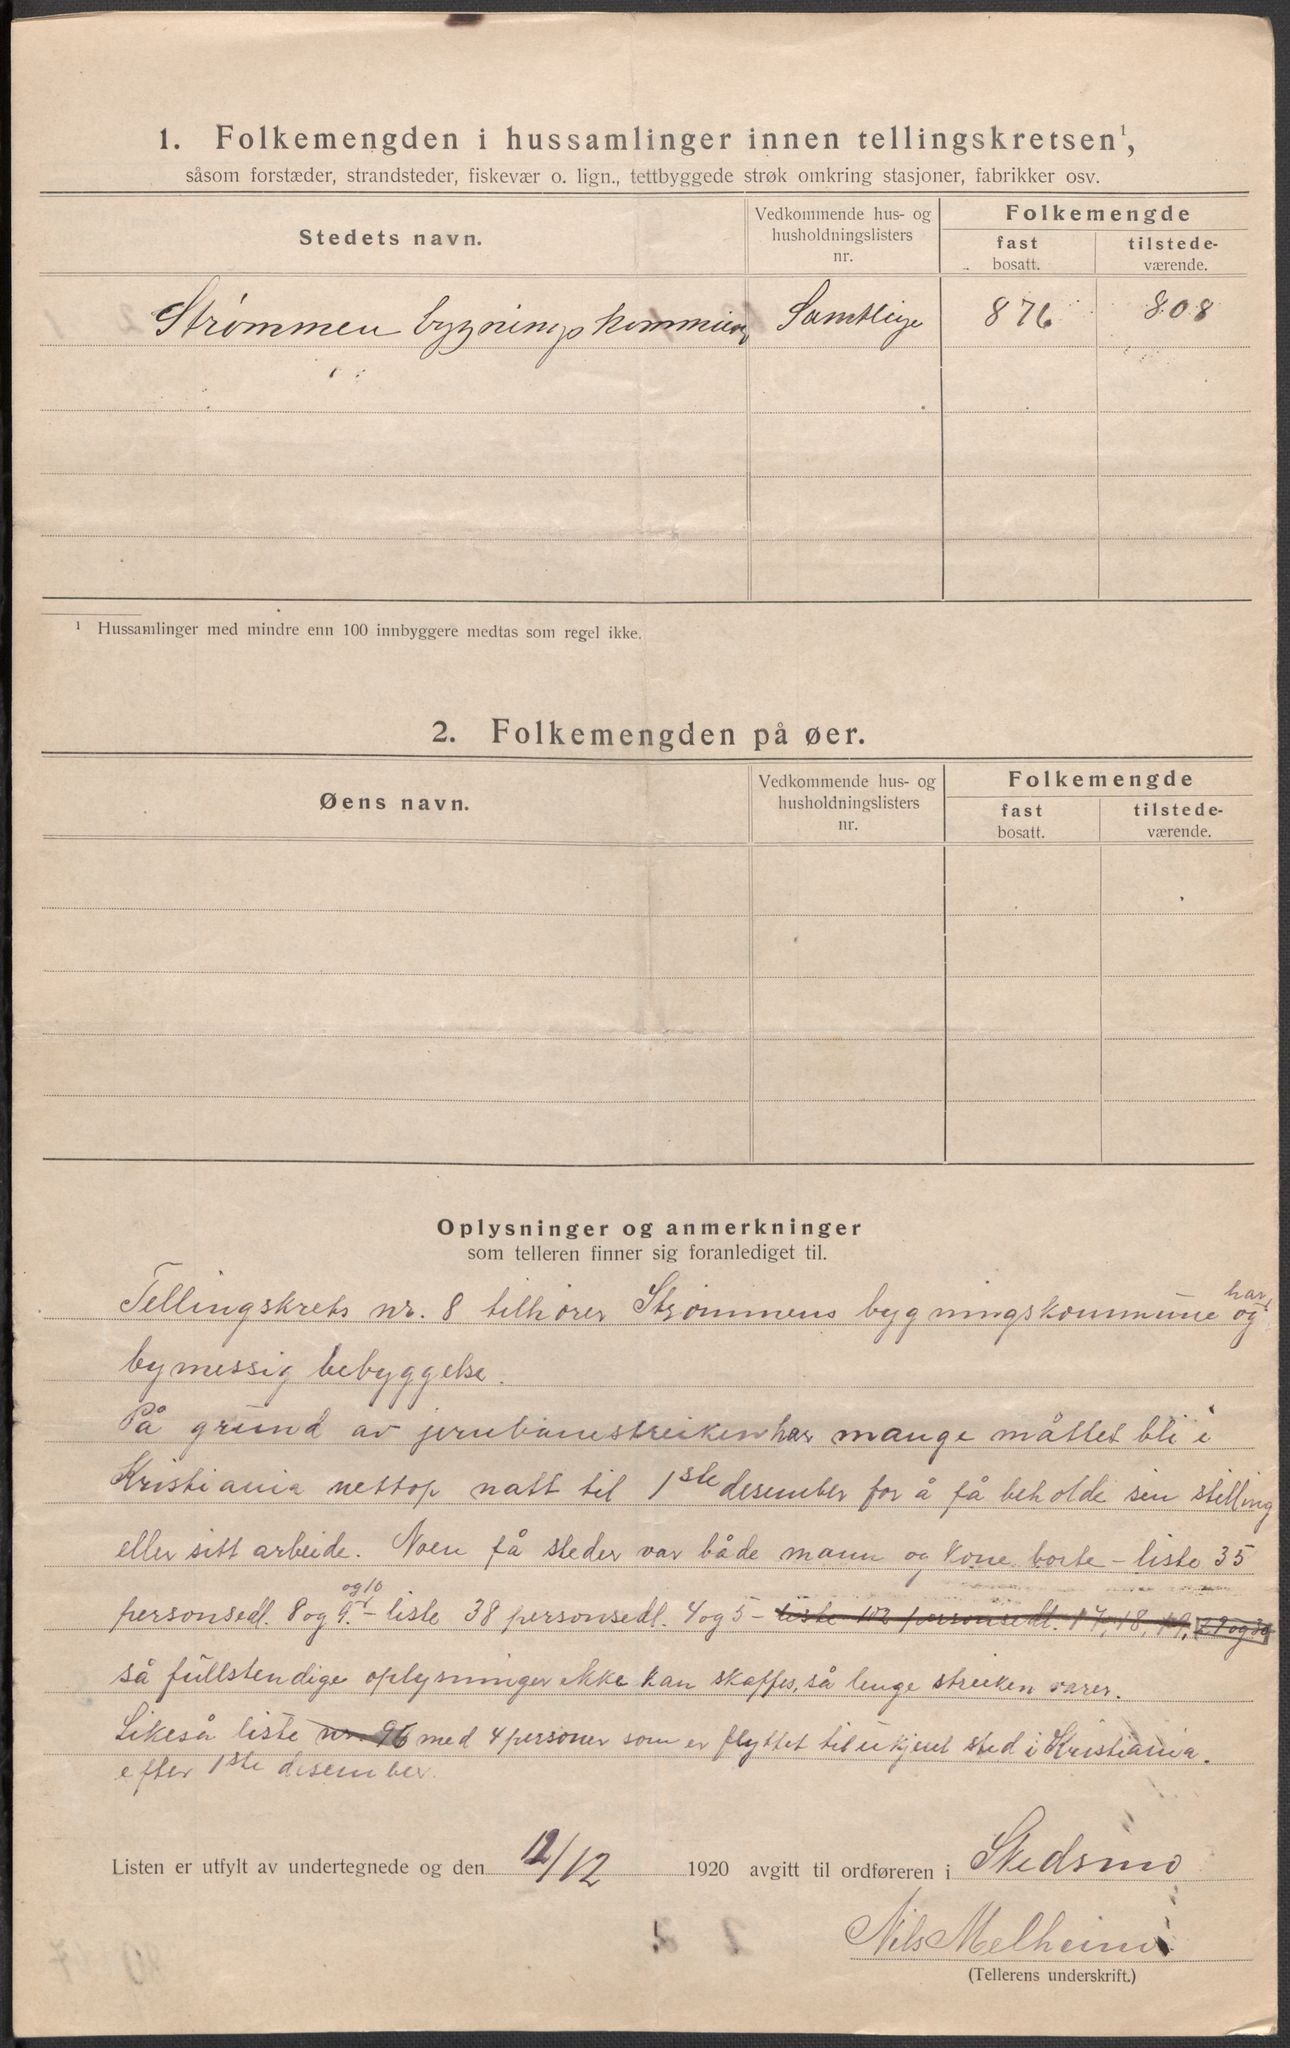 1. Folkemengden i hussamlinger innen tellingskretsen¹,
såsom forstæder, strandsteder, fiskevær o. lign., tettbyggede strøk omkring stasjoner, fabrikker osv.
Stedets navn.
Vedkommende hus- og husholdningslisters nr.
Folkemengde
fast bosatt.
tilstede-værende.
Strømmen bygnings Samtlige 876 808
¹ Hussamlinger med mindre enn 100 innbyggere medtas som regel ikke.
2. Folkemengden på øer.
Øens navn.
Vedkommende hus- og husholdningslisters nr.
Folkemengde
fast bosatt.
tilstede-værende.
Oplysninger og anmerkninger
som telleren finner sig foranlediget til.
Tellingskrets nr. 8 tilhører Strømmens bygningskommune og har
bymessig bebyggelse.
På grund av jernbanestreiken har mange måttet bli i
Kristiania nettop natt til 1ste desember for å få beholde sin stilling
eller sitt arbeide. Noen få steder var både mann og kone borte – liste 35
personsedl. 8 og 9 og 10 – liste 38 personsedl. 4 og 5 – liste 102 personsedl. 17, 18, 19, 29 og 30
så fullstendige oplysninger ikke kan skaffes, så lenge streiken varer.
Likeså liste nr. 96 med 4 personer som er flyttet til ukjent sted i Kristiania.
efter 1ste desember.
Listen er utfylt av undertegnede og den 12/12 1920 avgitt til ordføreren i Skedsmo
Nils Melheim
(Tellerens underskrift.)